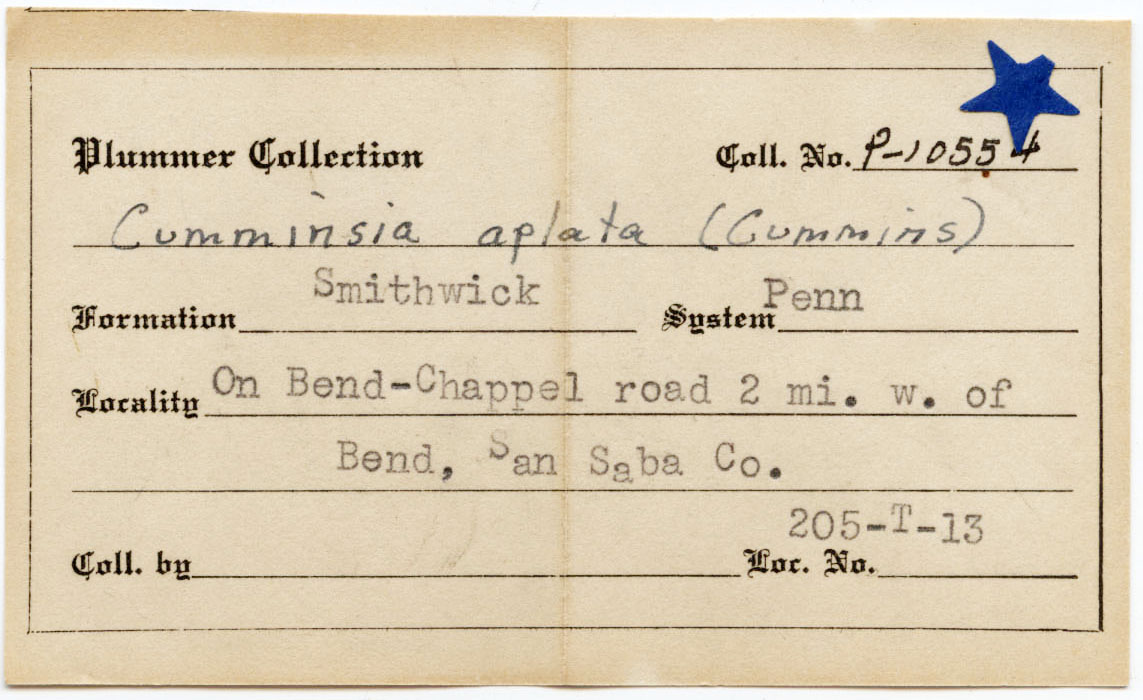 Plummer Collection Coll. No. P-10554
Cumminsia aplata (Cummins)
Formation Smithwick System Penn
Locality On Bend-Chappel road 2 mi. w. of
Bend, San Saba Co.
Coll. by Loc. No. 205-T-13